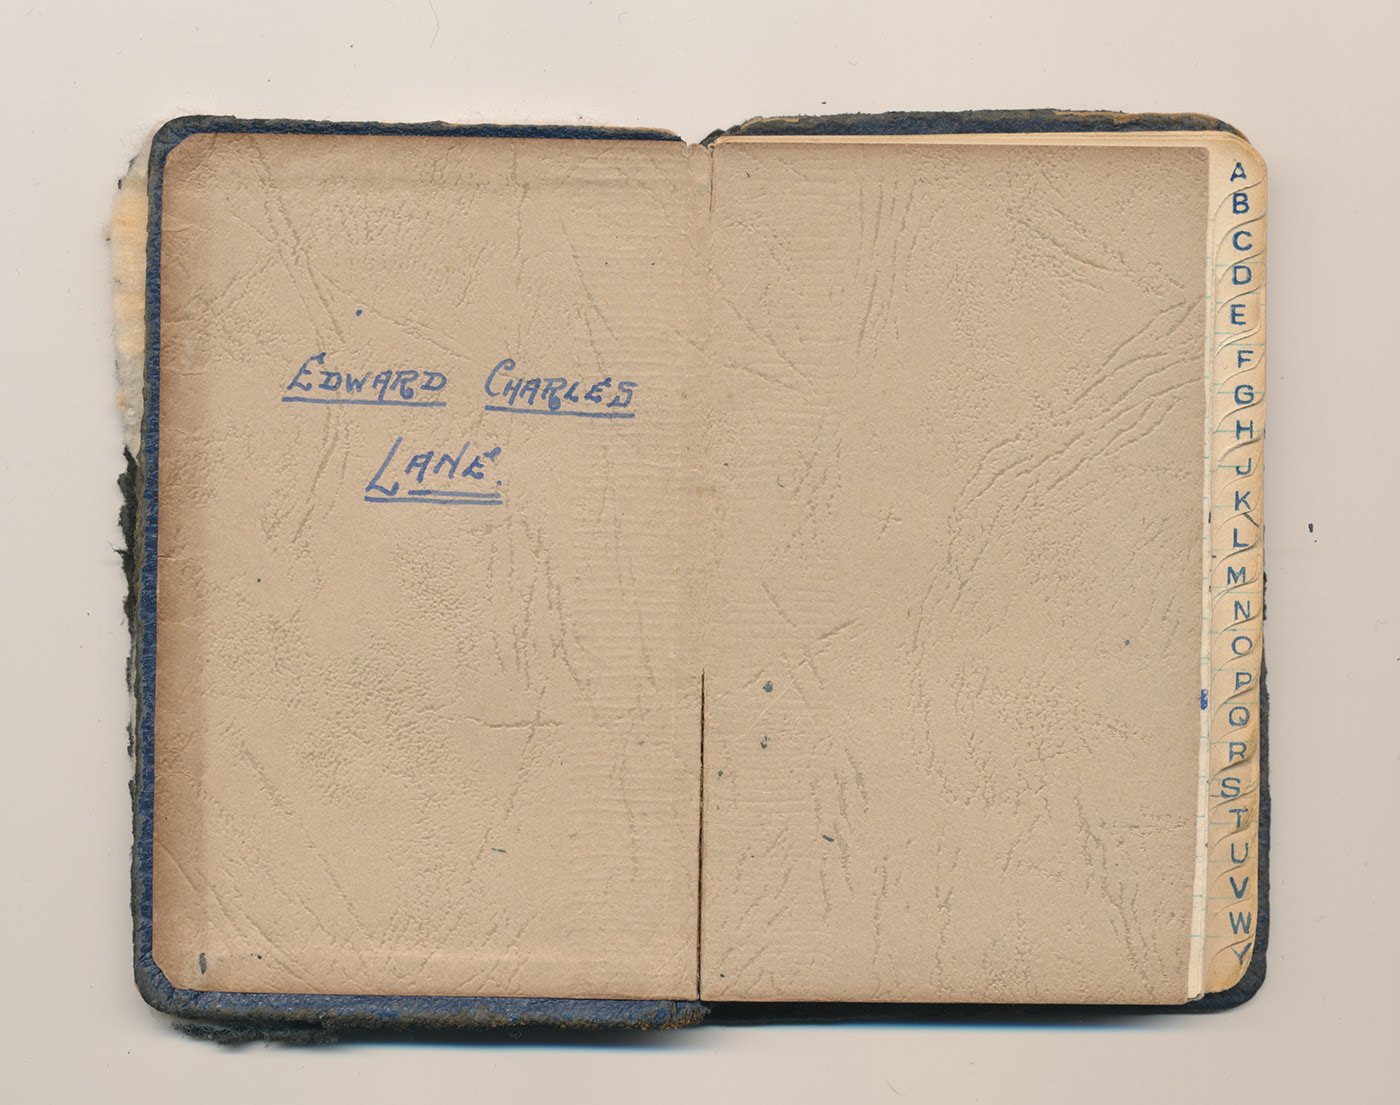 EDWARD CHARLES
LANE.
A
B
C
D
E
F
G
H
J
K
L
M
N
O
P
Q
R
S
T
U
V
W
Y